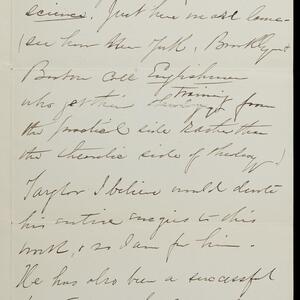 science. Just here most Ame-
(see how New York, Brooklyn &
Boston call Englishmen
training
who get their theology from
the practical side rather than
the theoretic side of theology.)
Taylor I believe would devote
his entire energies to this
work, & so I am for him.
He has also been a successful